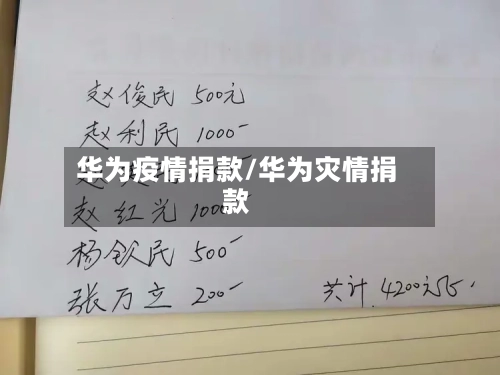 赵俊民 500元
赵利民 1000-
华为疫情捐款/华为灾情捐
款
赵红光 1000-
杨钦民 500-
张万立 200-
共计.4200元